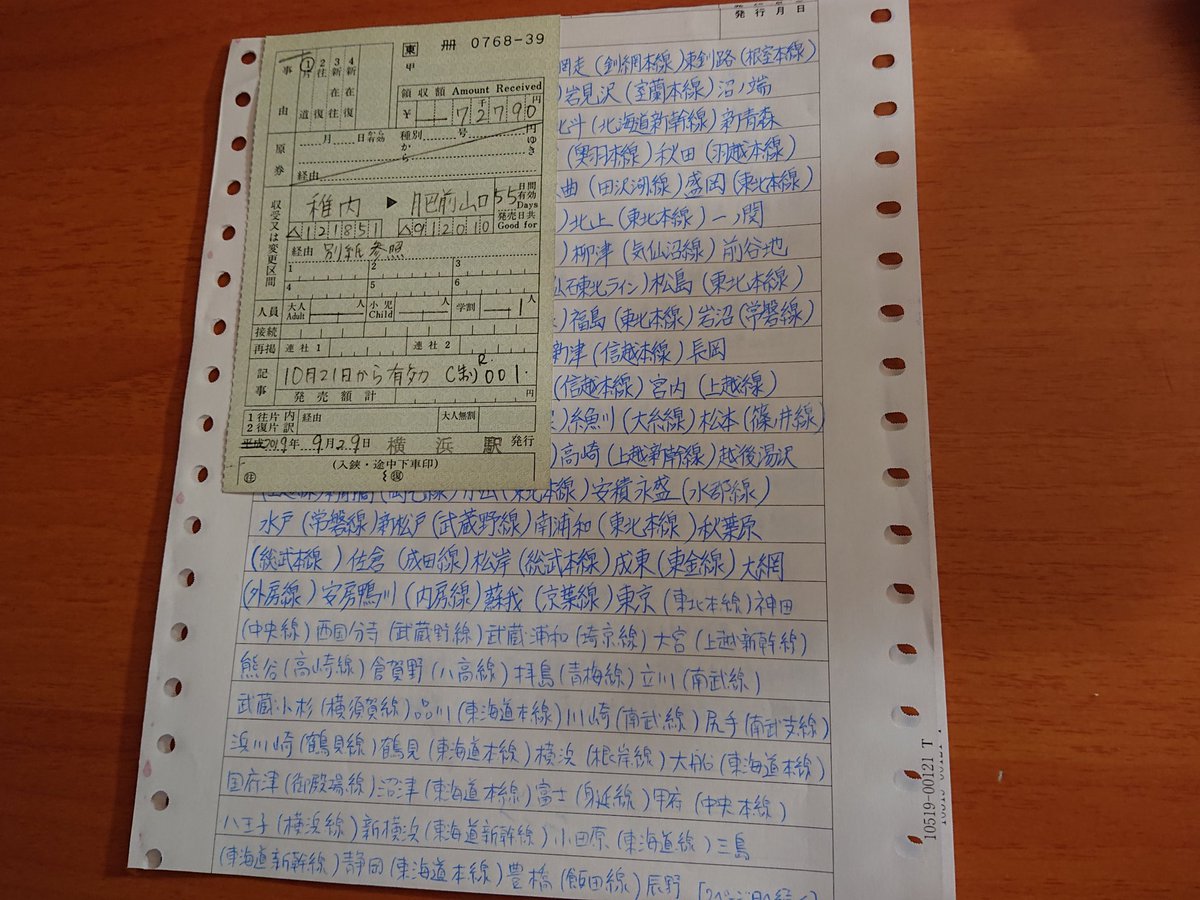 東 冊 0768-39
甲
事由
1片道
2往復
3新在往
4新在復
領収額 Amount Received
¥ 72千790円
原券
月 日から有効 種別 号 円
から ゆき
経由
収受又は変更区間
稚内 ▶ 肥前山口 55日間有効 Days
△121851 △912010 発売日共 Good for
経由 別紙参照
1 2 3
4 5 6
人員 大人 Adult 人 小児 Child 人 学割 1人
接続
再掲 連社1 連社2
記事 10月21日から有効 (制) R.001.
発売額計 円
1往片内 2復片訳 経由 大人無割
平成2019年 9月29日 横浜駅 発行
(入鋏・途中下車印)
発行月日
網走(釧網本線)東釧路(根室本線)
)岩見沢(室蘭本線)沼ノ端
北斗(北海道新幹線)新青森
(奥羽本線)秋田(羽越本線)
曲(田沢湖線)盛岡(東北本線)
)北上(東北本線)一ノ関
)柳津(気仙沼線)前谷地
仙石東北ライン)松島(東北本線)
)福島(東北本線)岩沼(常磐線)
新津(信越本線)長岡
(信越本線)宮内(上越線)
)糸魚川(大糸線)松本(篠ノ井線)
)高崎(上越新幹線)越後湯沢
(東北本線)安積永盛(水郡線)
水戸(常磐線)新松戸(武蔵野線)南浦和(東北本線)秋葉原
(総武本線)佐倉(成田線)松岸(総武本線)成東(東金線)大網
(外房線)安房鴨川(内房線)蘇我(京葉線)東京(東北本線)神田
(中央線)西国分寺(武蔵野線)武蔵浦和(埼京線)大宮(上越新幹線)
熊谷(高崎線)倉賀野(八高線)拝島(青梅線)立川(南武線)
武蔵小杉(横須賀線)品川(東海道本線)川崎(南武線)尻手(南武支線)
浜川崎(鶴見線)鶴見(東海道本線)横浜(根岸線)大船(東海道本線)
国府津(御殿場線)沼津(東海道本線)富士(身延線)甲府(中央本線)
八王子(横浜線)新横浜(東海道新幹線)小田原(東海道線)三島
(東海道新幹線)静岡(東海道本線)豊橋(飯田線)辰野
10519-00121 T